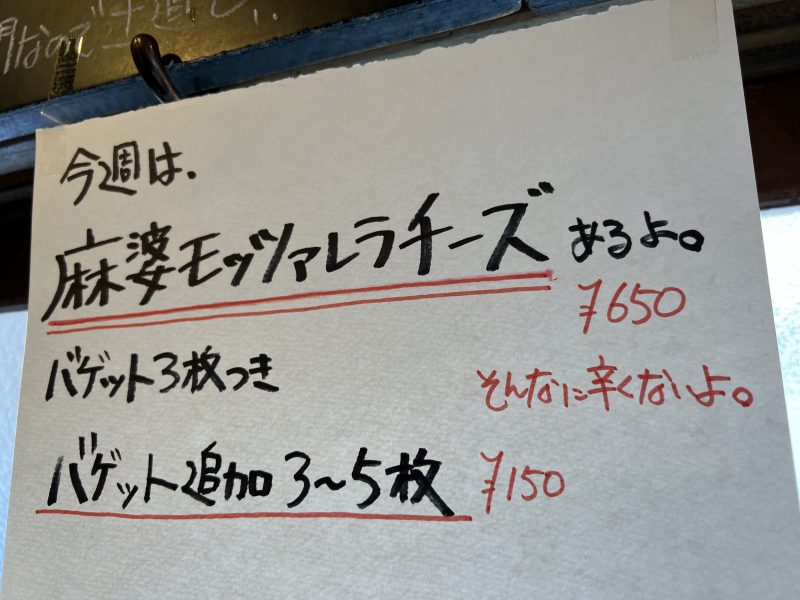 今週は、
麻婆モッツァレラチーズ あるよ。
¥650
バゲット3枚つき
そんなに辛くないよ。
バゲット追加 3〜5枚 ¥150